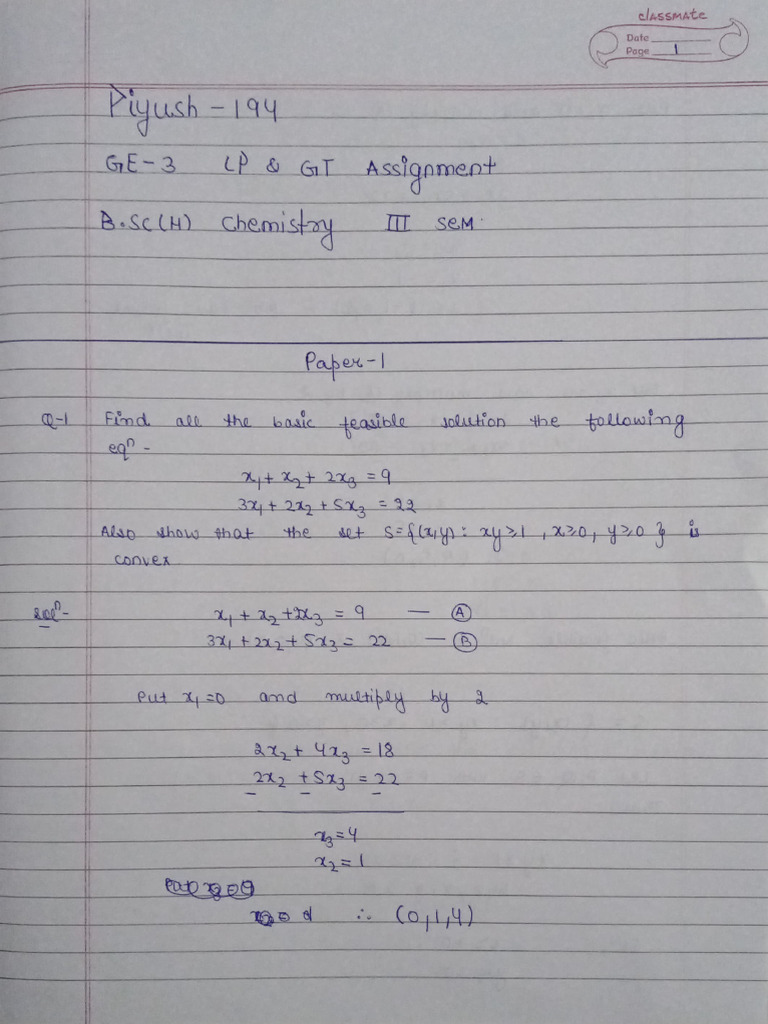 classmate
Date
Page 1
Piyush - 194
GE-3 LP & GT Assignment
B.SC(H) Chemistry III SEM.
Paper-1
Q-1 Find all the basic feasible solution the following
eqⁿ -
x₁ + x₂ + 2x₃ = 9
3x₁ + 2x₂ + 5x₃ = 22
Also show that the set S={(x,y): xy≥1, x≥0, y≥0} is
convex
solⁿ-
x₁ + x₂ + 2x₃ = 9 — Ⓐ
3x₁ + 2x₂ + 5x₃ = 22 — Ⓑ
Put x₁=0 and multiply by 2
2x₂ + 4x₃ = 18
2x₂ + 5x₃ = 22
x₃=4
x₂=1
∴ (0,1,4)